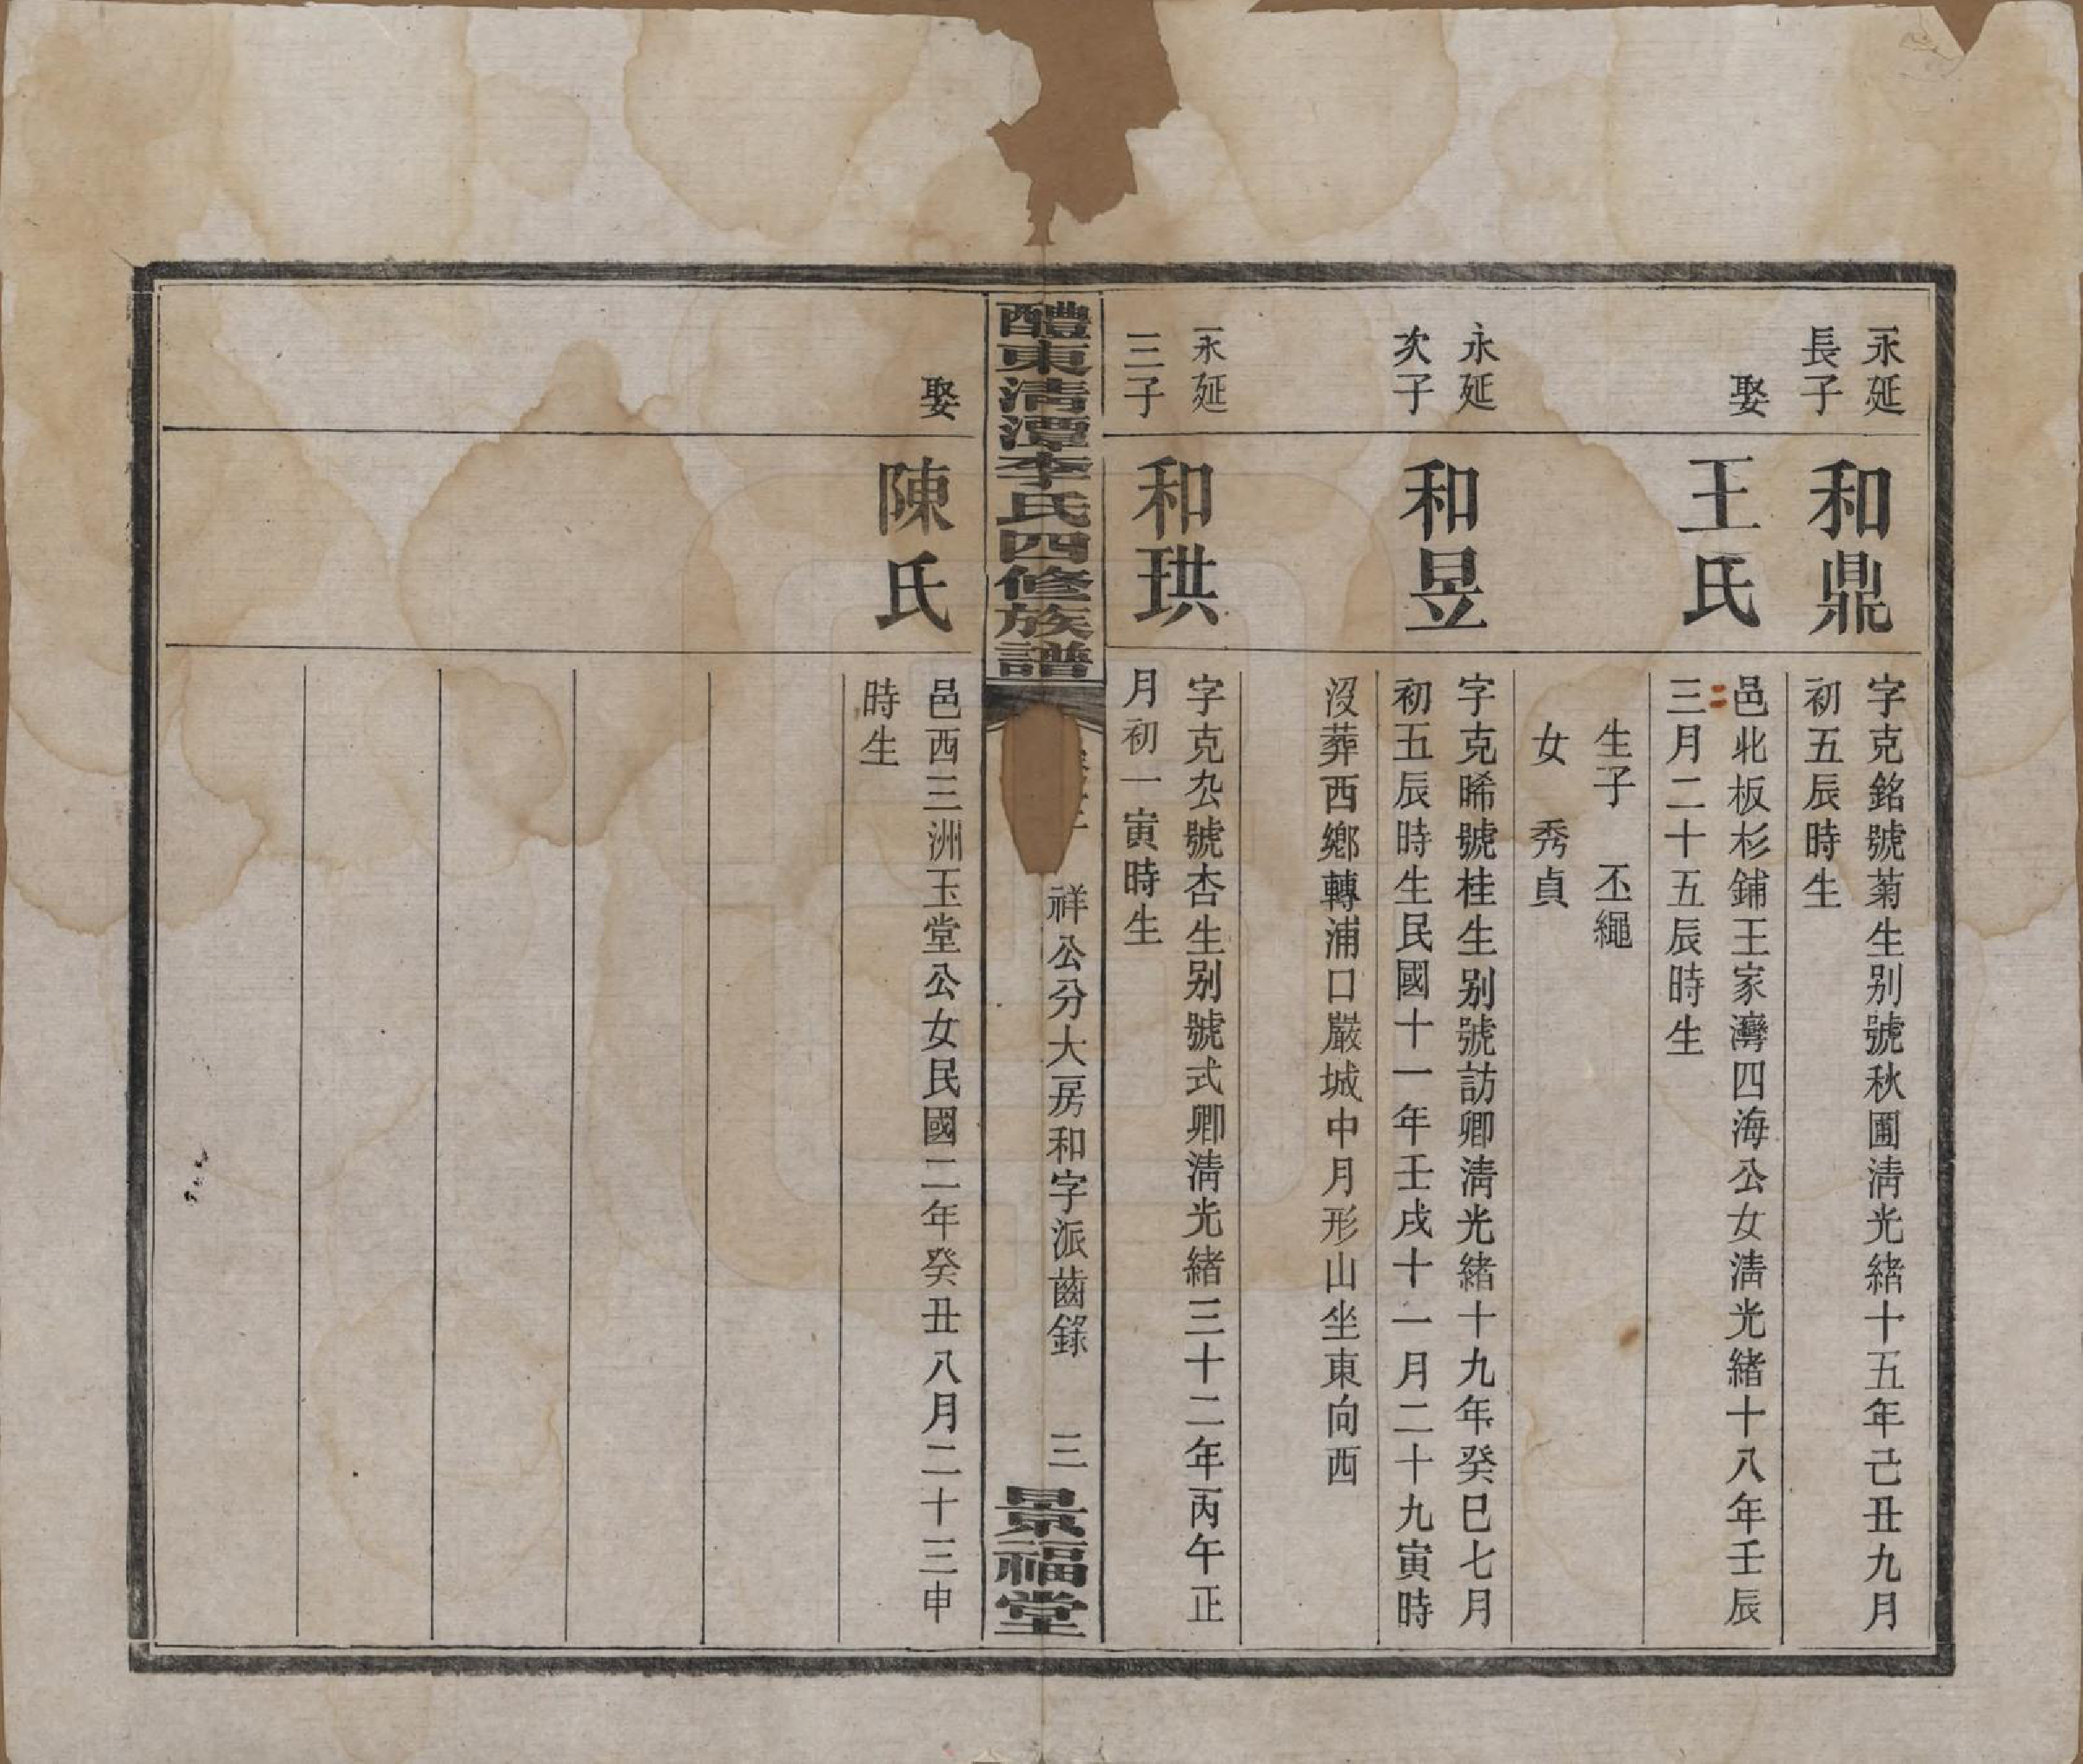 永延
長子
和鼎
字克銘號菊生别號秋圃淸光緒十五年己丑九月
初五辰時生
娶
王氏
邑北板杉鋪王家灣四海公女淸光緒十八年壬辰
三月二十五辰時生
生子 丕繩
女 秀貞
永延
次子
和昱
字克晞號桂生别號訪卿淸光緒十九年癸巳七月
初五辰時生民國十一年壬戌十一月二十九寅時
沒葬西鄉轉浦口嚴城中月形山坐東向西
永延
三子
和珙
字克厹號杏生别號式卿淸光緒三十二年丙午正
月初一寅時生
醴東淸潭李氏四修族譜
祥公分大房和字派齒錄 三
景福堂
娶
陳氏
邑西三洲玉堂公女民國二年癸丑八月二十三申
時生